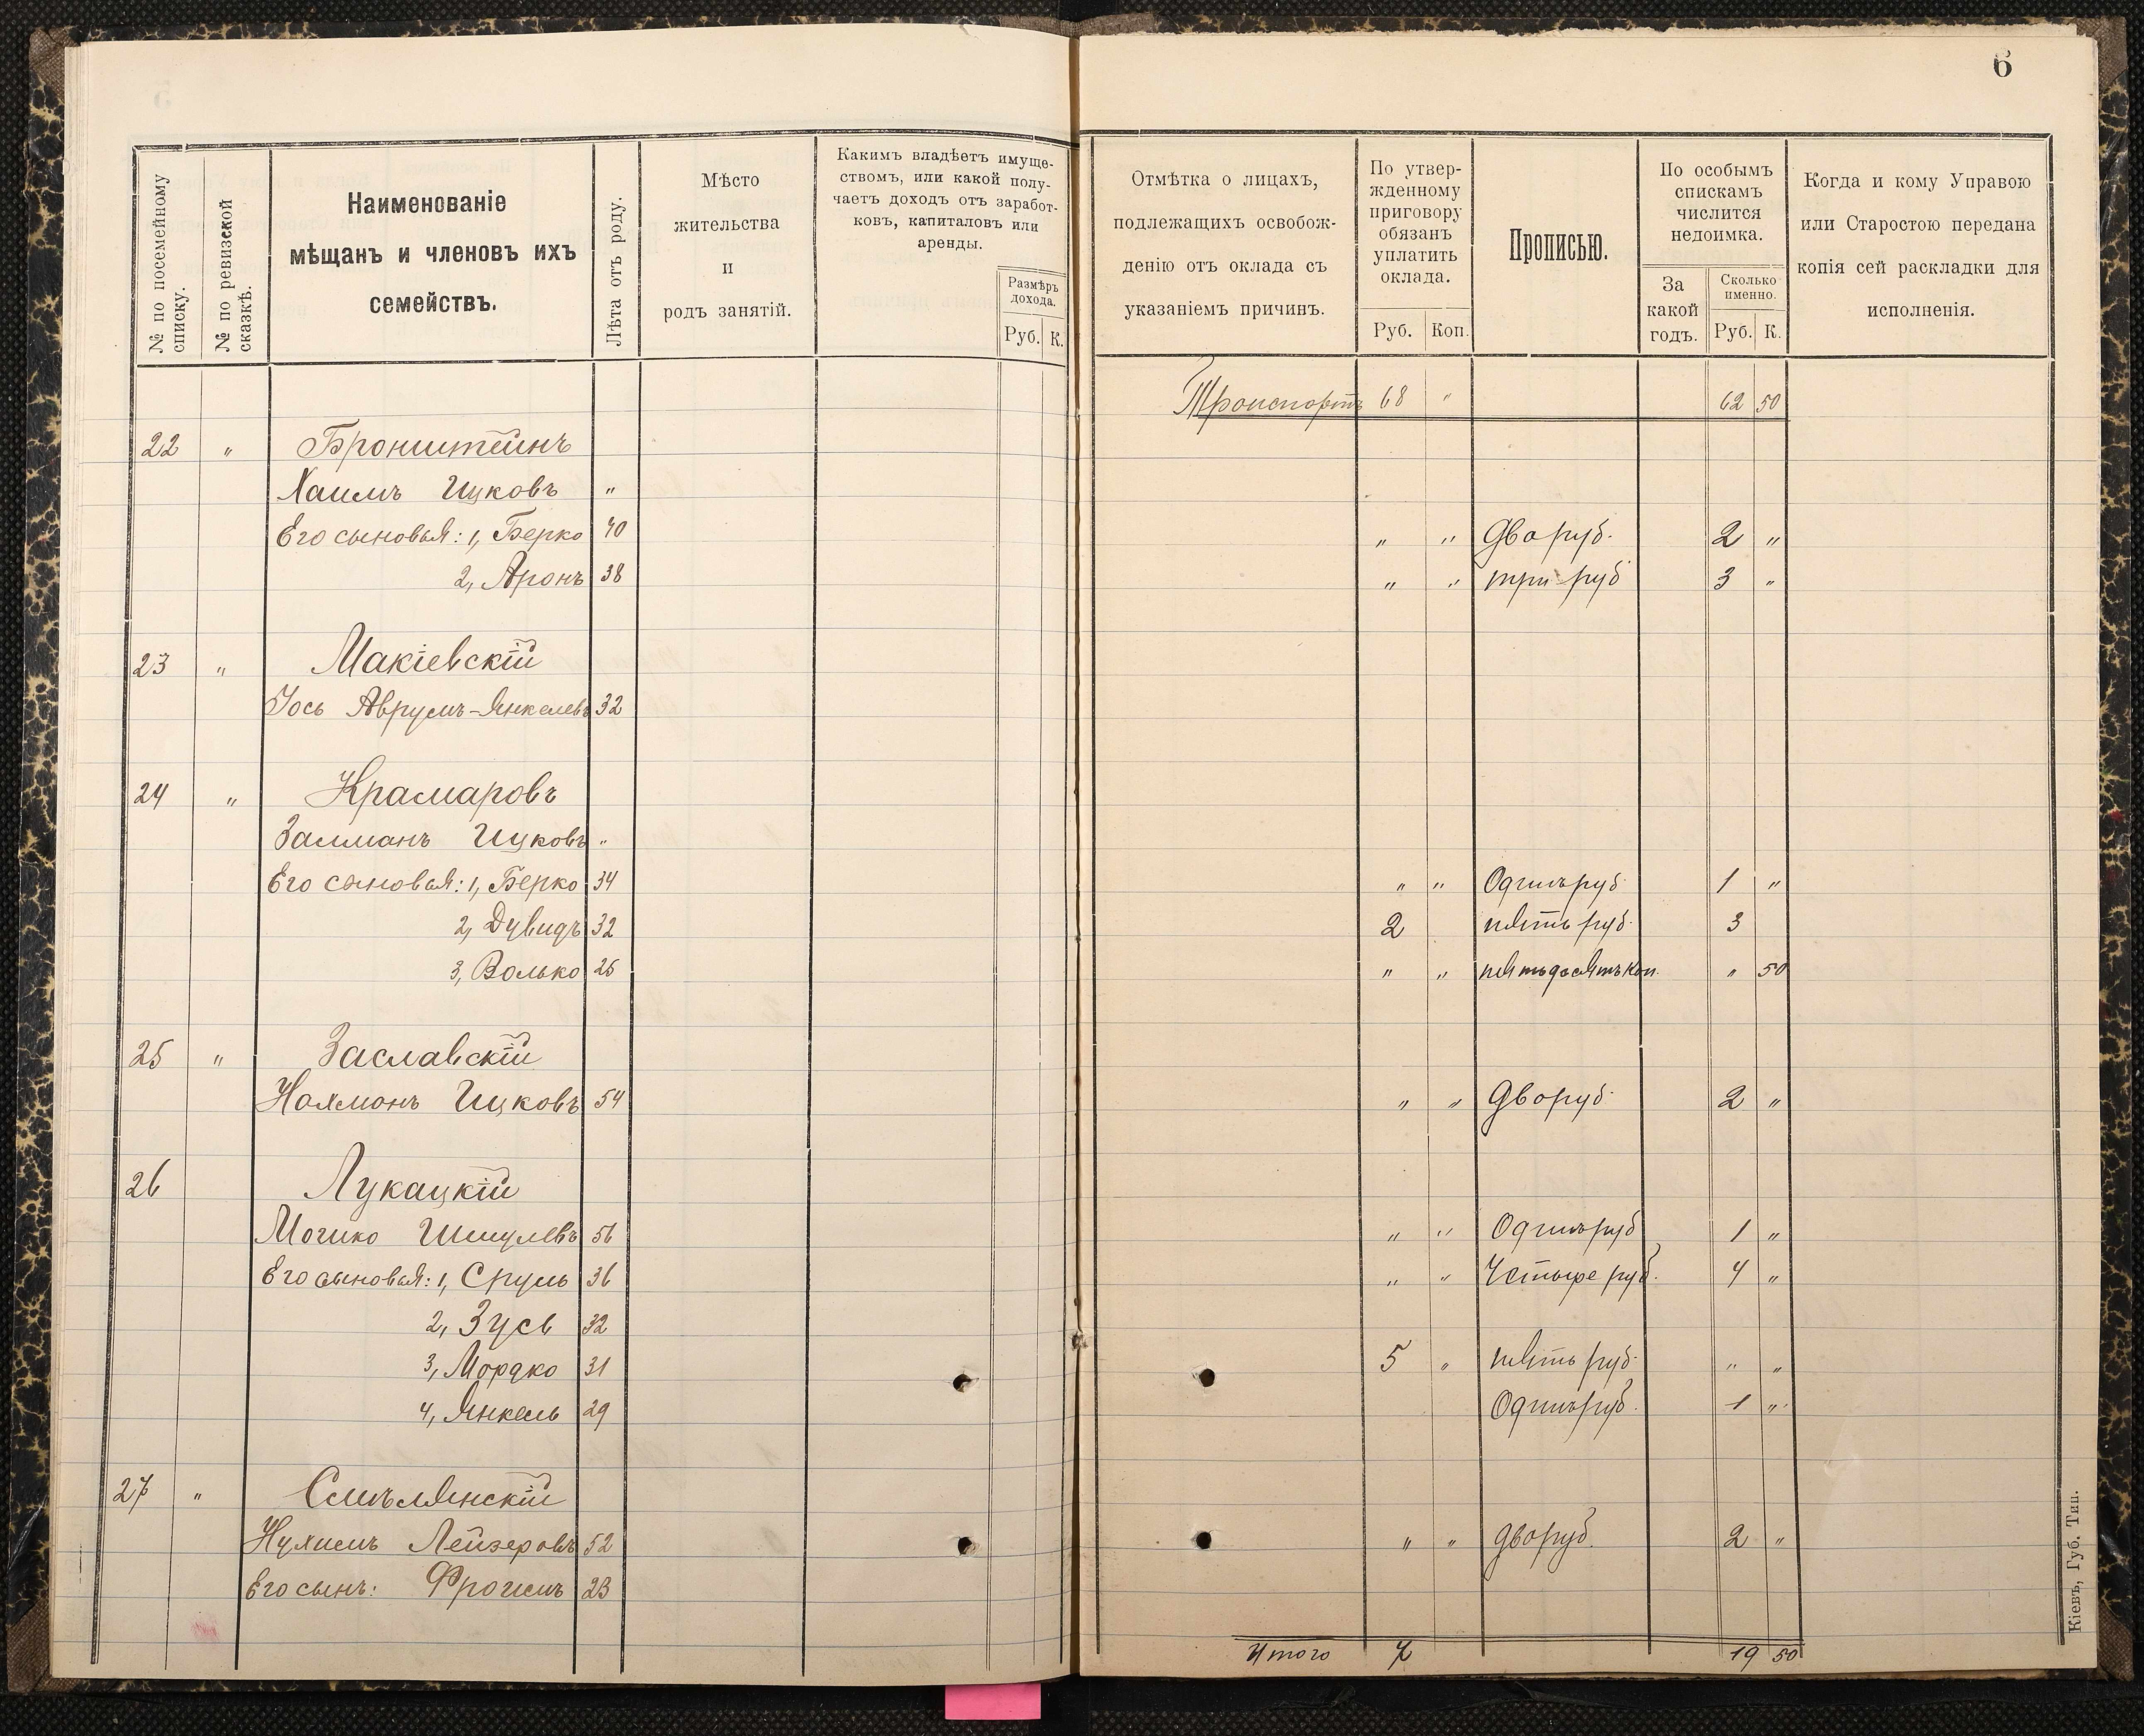 6
№ по посемейному списку.
№ по ревизской сказкѣ.
Наименованіе
мѣщанъ и членовъ ихъ
семействъ.
Лѣта отъ роду.
Мѣсто
жительства
и
родъ занятій.
Какимъ владѣетъ имуще-
ствомъ, или какой полу-
чаетъ доходъ отъ заработ-
ковъ, капиталовъ или
аренды.
Размѣръ
дохода.
Руб. К.
Отмѣтка о лицахъ,
подлежащихъ освобож-
денію отъ оклада съ
указаніемъ причинъ.
По утвер-
жденному
приговору
обязанъ
уплатить
оклада.
Руб. Коп.
Прописью.
По особымъ
спискамъ
числится
недоимка.
За
какой
годъ.
Сколько
именно.
Руб. К.
Когда и кому Управою
или Старостою передана
копія сей раскладки для
исполненія.
Транспортъ 68 " 62 50
22 " Бронштейнъ
Хаимъ Ицковъ "
Его сыновья: 1, Берко 40 " " Два руб. 2 "
2, Аронъ 38 " " три руб 3 "
23 " Макіевскій
Іось Аврумъ-Янкелевъ 32
24 " Крамаровъ
Залманъ Ицковъ "
Его сыновья: 1, Берко 34 " " Одинъ руб. 1 "
2, Дувидъ 32 2 пять руб. 3
3, Волько 25 " " пятьдесятъ коп. " 50
25 " Заславскій
Нахманъ Ицковъ 54 " " Два руб. 2 "
26 Лукацкій
Мошко Шмулевъ 56 " " Одинъ руб 1 "
Его сыновья: 1, Сруль 36 " " Четыре руб. 4 "
2, Зусь 32
3, Мордко 31 5 " пять руб. " "
4, Янкель 29 Одинъ руб. 1 "
27 " Смѣлянскій
Нухимъ Лейзеровъ 52 " " два руб. 2 "
Его сынъ: Фроимъ 23
Итого 7 19 50
Кіевъ, Губ. Тип.